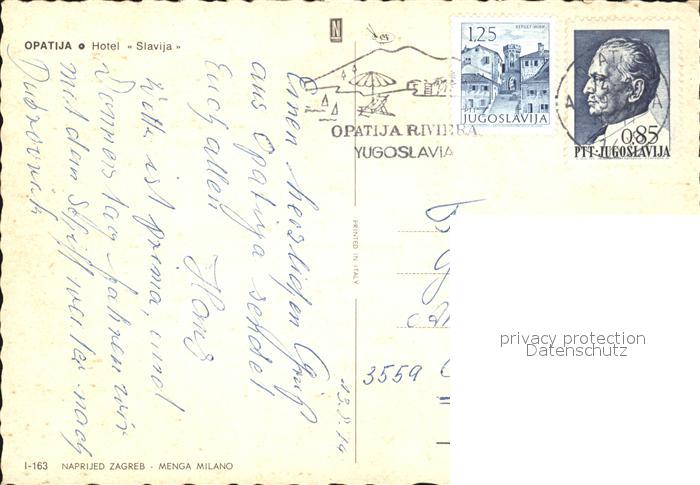 OPATIJA • Hotel « Slavija »
N
1.25
JUGOSLAVIJA
0.85
PTT·JUGOSLAVIJA
OPATIJA RIVIERA
YUGOSLAVIA
Einen herzlichen Gruß
aus Opatija sendet
Euch allen Hans
ist prima, und
Donnerstag fahren wir
mit dem Schiff weiter nach
Dubrovnik
PRINTED IN ITALY
3559
privacy protection
Datenschutz
I-163 NAPRIJED ZAGREB - MENGA MILANO